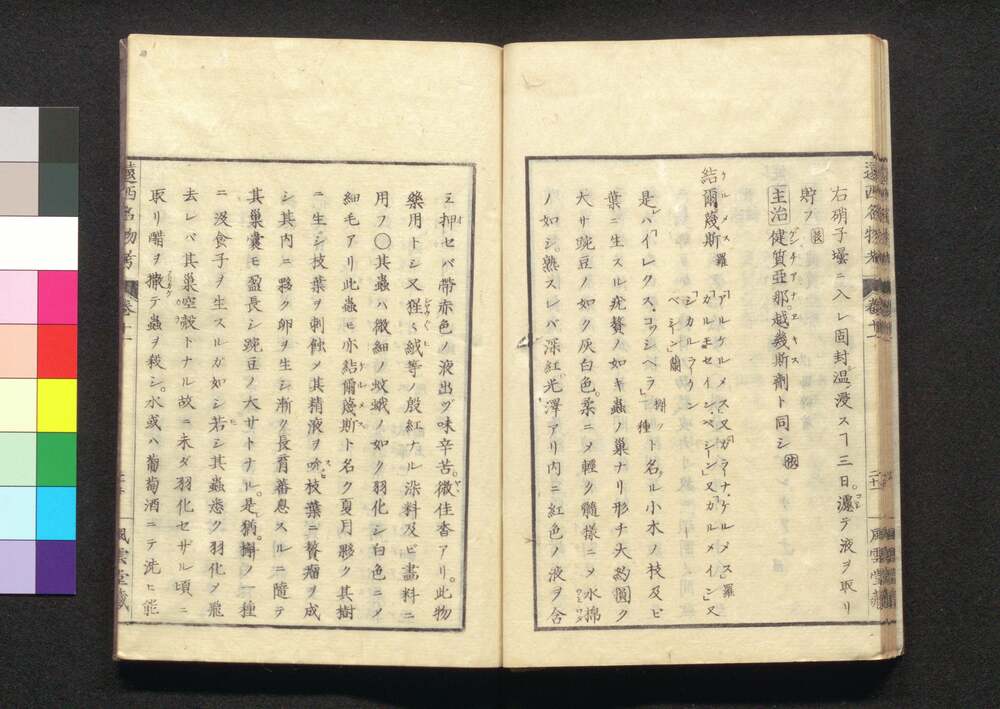 右硝子壜ニ入レ固封温ニ浸スヿ三日。濾テ液ヲ取リ
貯フ
主治 健質亞那越幾斯劑ト同シ
ゲンチアナエキス
ケルメス羅
結爾篾斯
「アルケルメス」又「ガラナ・ケルメス」羅
「カルモセイン・ベシーン」又「カルメイン」又
「シカルラーケン
ベシーン」蘭
是レ「ハイレクス・コッシペラ」槲ノ一種ト名ル小木ノ枝及ヒ
葉ニ生スル疣贅ノ如キ蟲ノ巢ナリ形チ大約圓ク
大サ豌豆ノ如ク灰白色。柔ニメ輕ク髓様ニメ水綿
ノ如シ。熟スレバ深紅光澤アリ内ニ紅色ノ液ヲ含
遠西名物考 卷十一
風雲堂藏
ミ押セバ帶赤色ノ液出ヅ味辛苦。微佳香アリ。此物
藥用トシ又猩々絨等ノ殷紅ナル染料及ビ畫料ニ
用フ〇其蟲ハ微細ノ蚊蛾ノ如ク羽化シ白色ニメ
細毛アリ此蟲モ亦結爾篾斯ト名ク夏月夥ク其樹
ケルメス
ニ生シ枝葉ヲ刺蝕メ其精液ヲ吮枝葉ニ贅瘤ヲ成
シ其内ニ夥ク卵ヲ生シ漸ク長育蕃息スルニ隨テ
其巢囊モ盈長シ豌豆ノ大サトナル。是猶槲ノ一種
ニ沒食子ヲ生スルガ如シ若シ其蟲悉ク羽化メ飛
去レバ其巢空殼トナル故ニ未ダ羽化セザル頃ニ
取リ醋ヲ撒テ蟲ヲ殺シ。水或ハ葡萄酒ニテ洗ヒ能
遠西名物考 卷十一
風雲堂藏